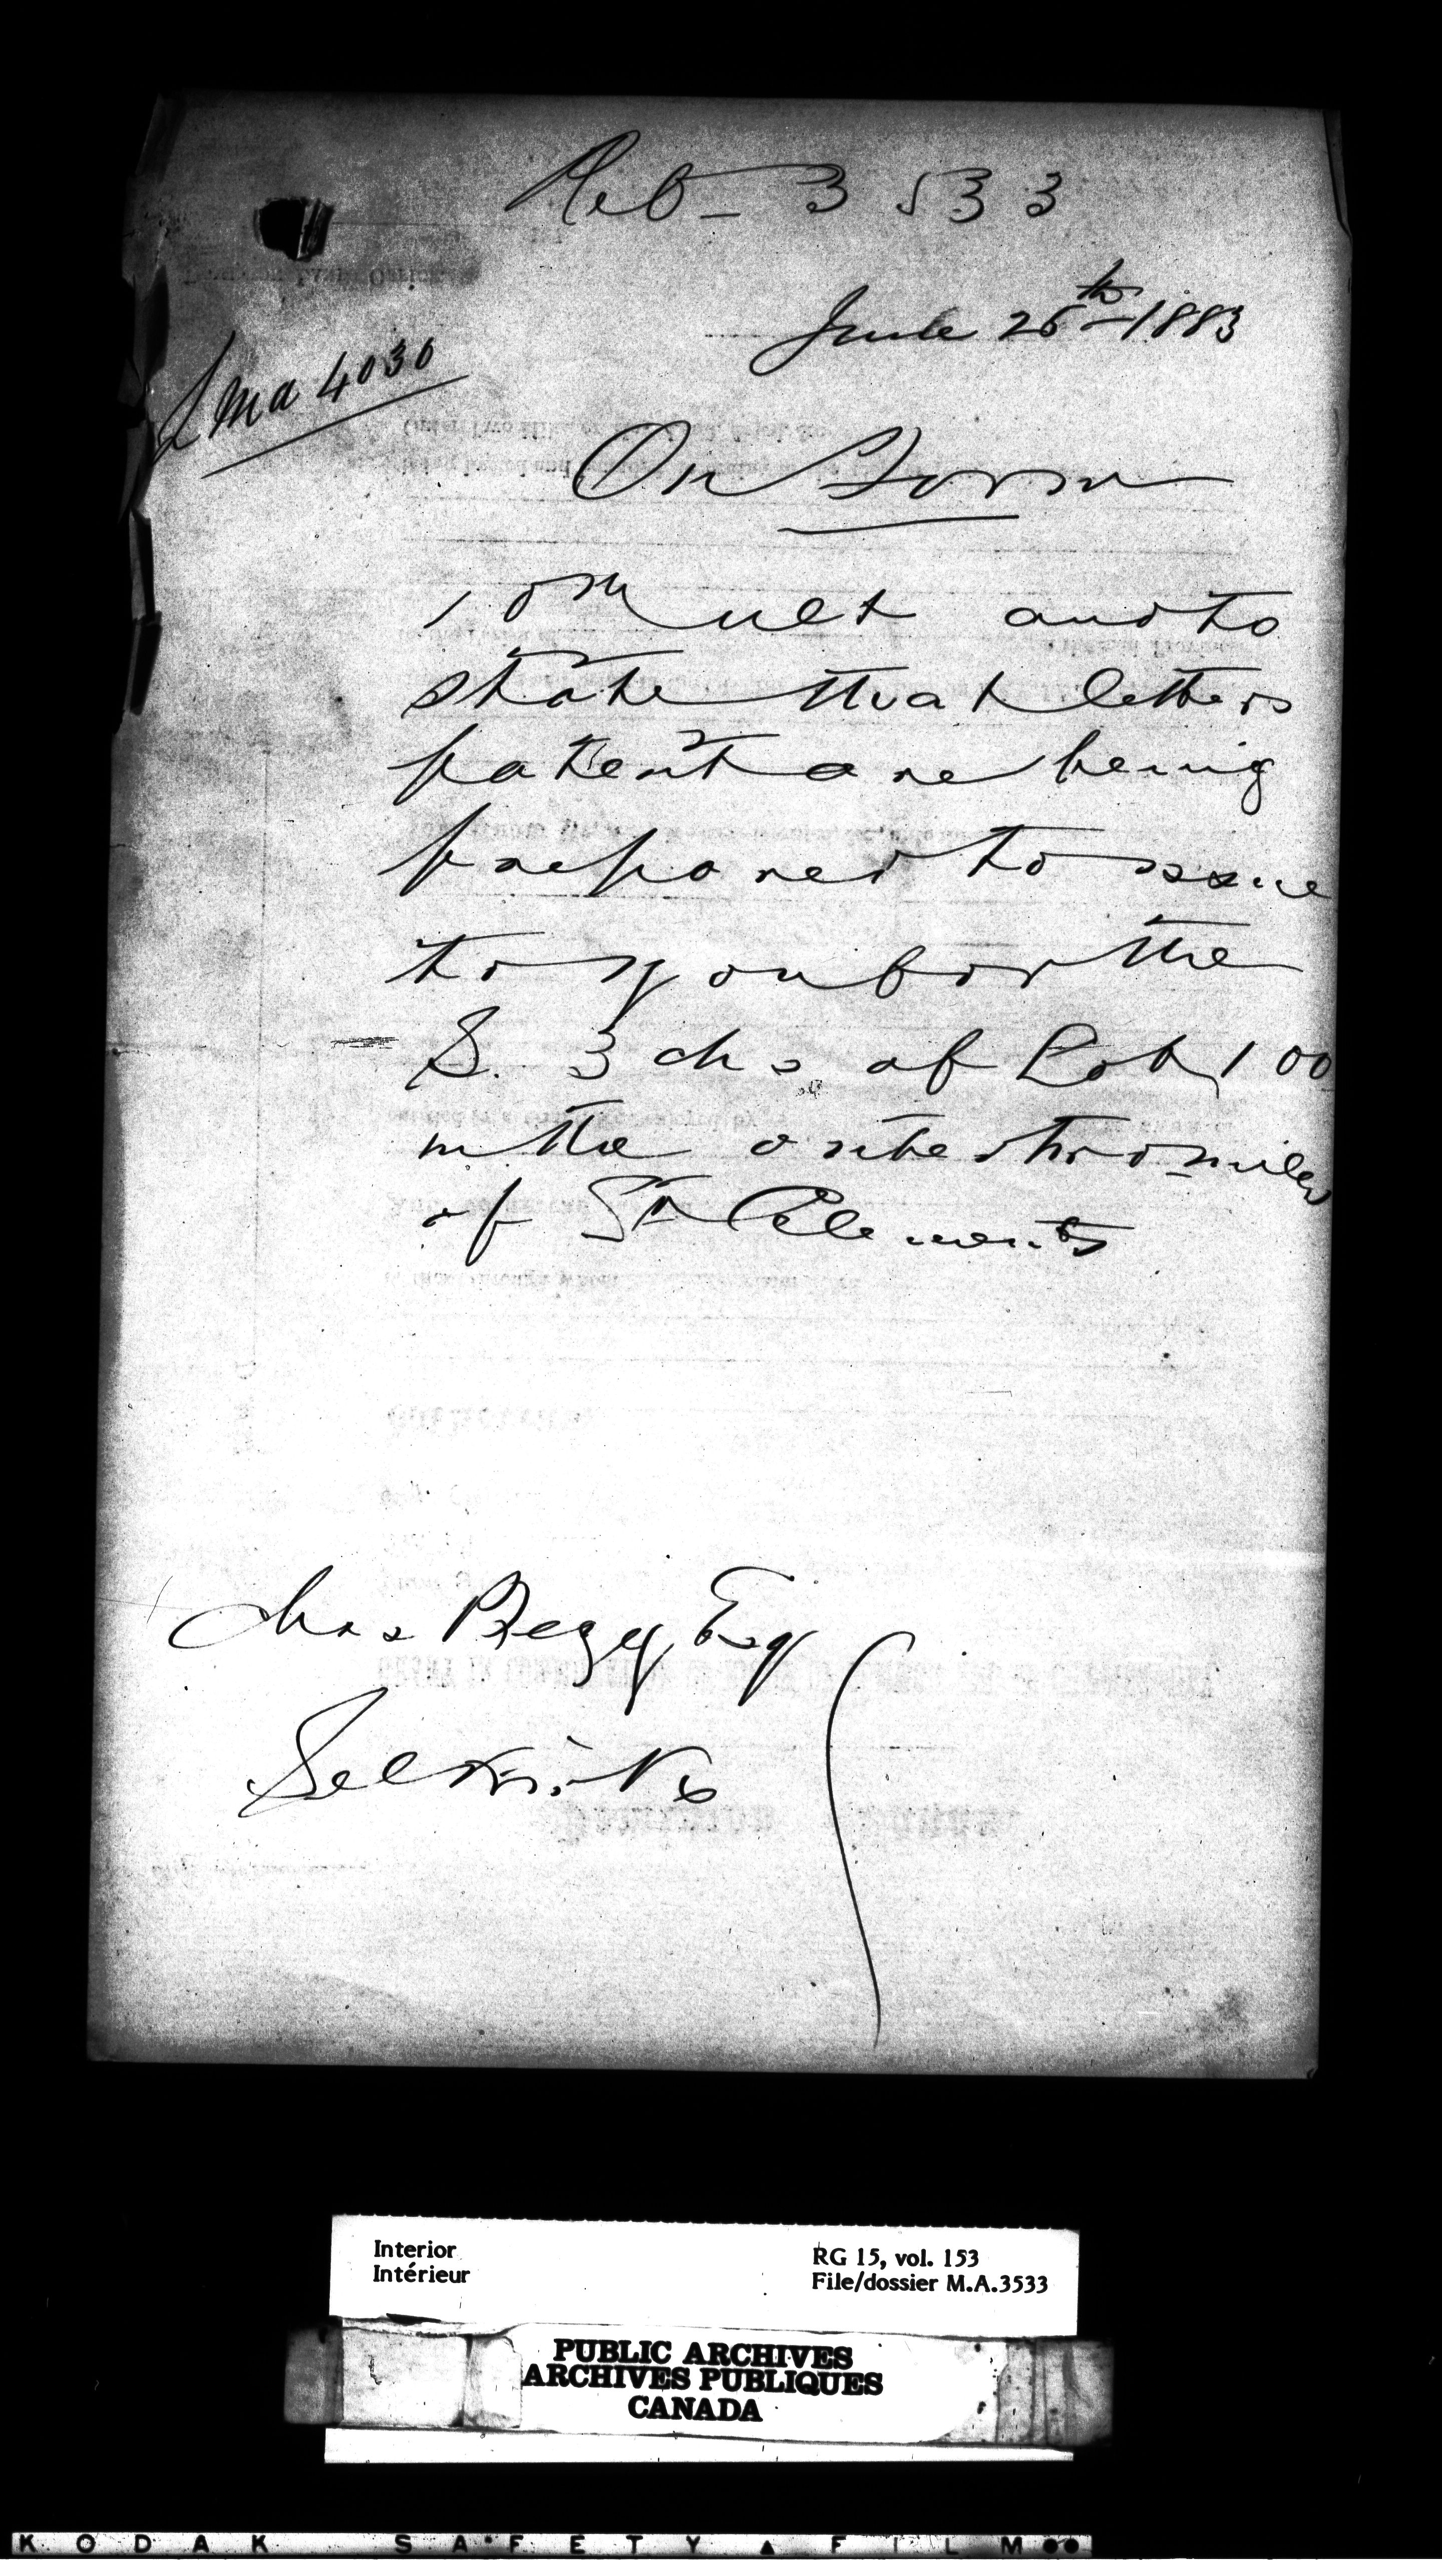 Ref - 3533
June 26th 1883
L Ma 4030
On Form
10th ult and to
state that letters
patent are being
prepared to issue
to you for the
S. 3 chs of Lot 100
in the outer two miles
of St Clements
Chas Begg Esq
Selkirk
Interior
Intérieur
RG 15, vol. 153
File/dossier M.A.3533
PUBLIC ARCHIVES
ARCHIVES PUBLIQUES
CANADA
KODAK SAFETY FILM